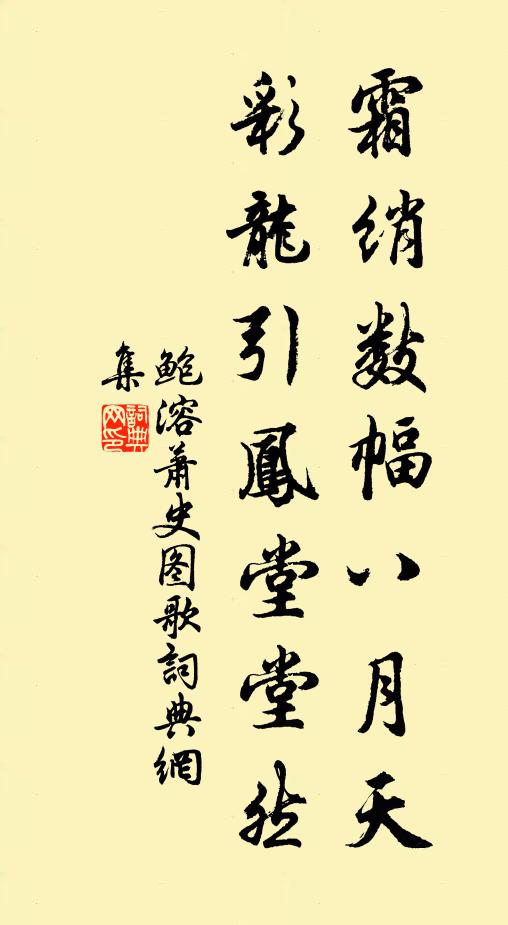 霜绡数幅八月天
彩龍引鳳堂堂然
鲍溶萧史图歌詞典網
集
詞典
网印